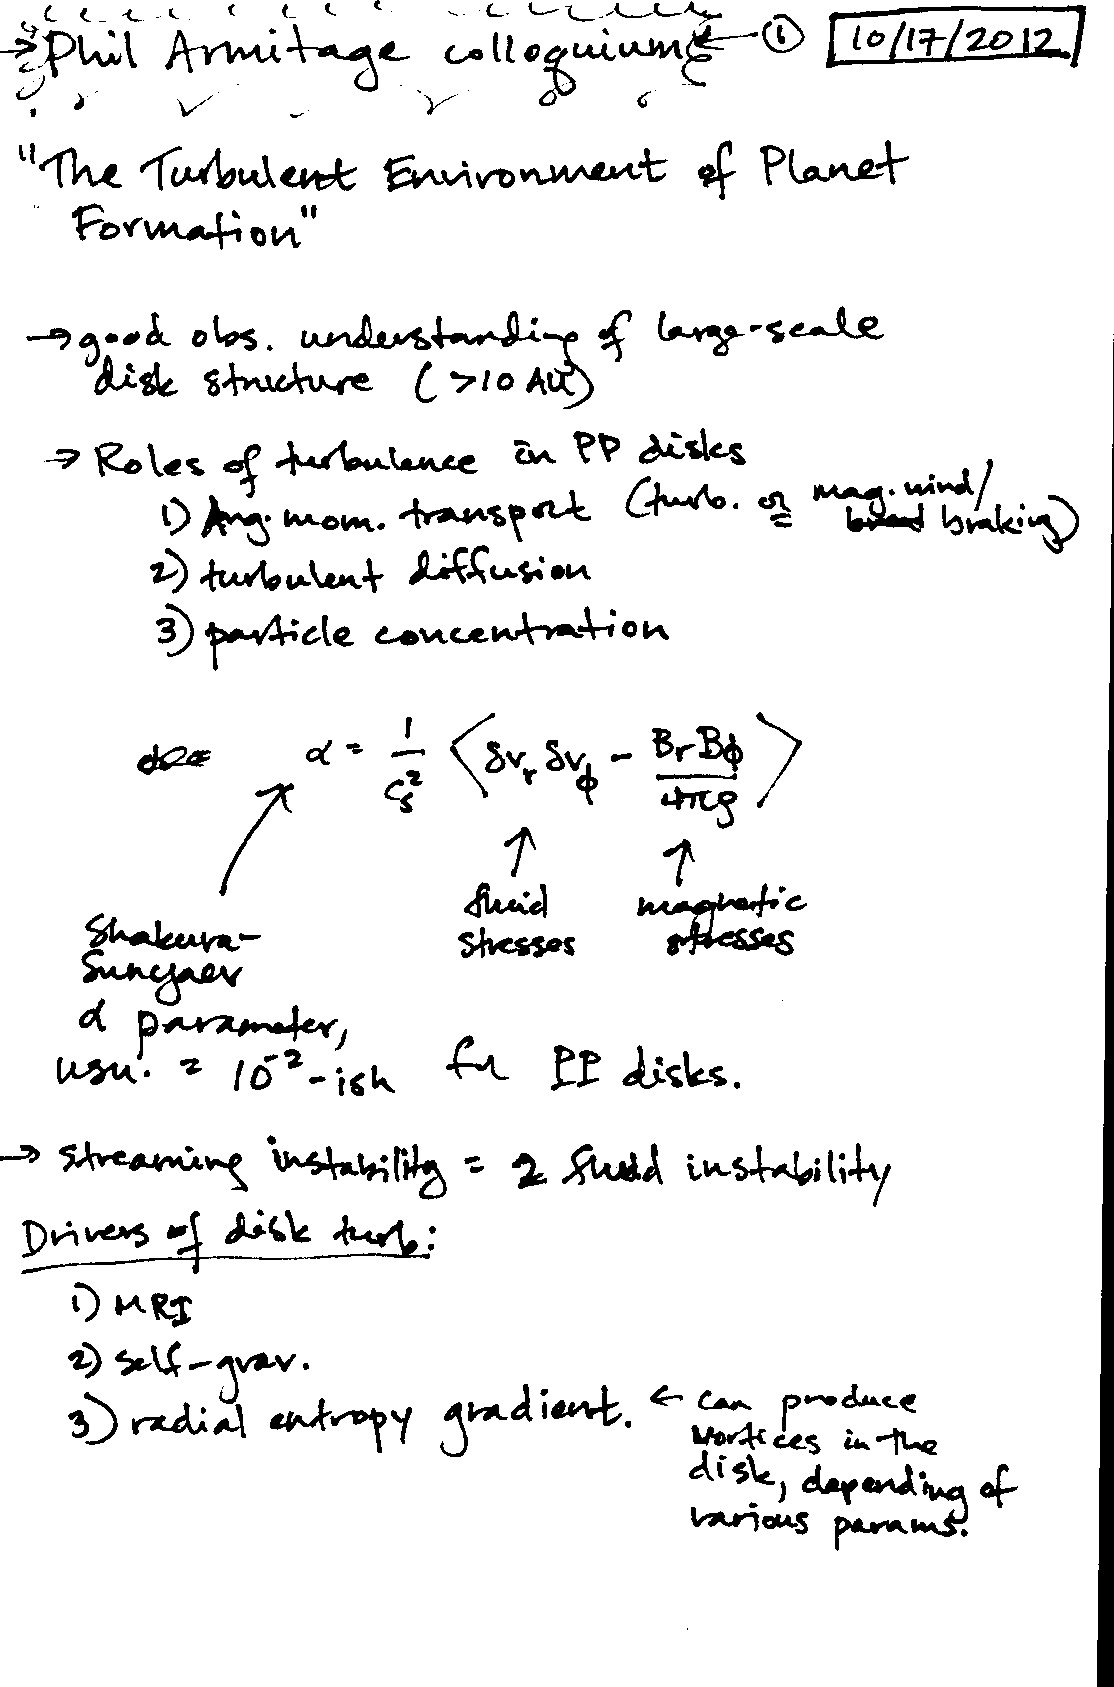 → Phil Armitage colloquium ← ① 10/17/2012
"The Turbulent Environment of Planet
Formation"
→ good obs. understanding of large-scale
disk structure (>10 AU)
→ Roles of turbulence in PP disks
1) Ang. mom. transport (turb. or mag. wind/
braking)
2) turbulent diffusion
3) particle concentration
α = 1/c_s² ⟨ δv_r δv_ϕ - B_r B_ϕ / 4πρ ⟩
↑ fluid
stresses
↑ magnetic
stresses
Shakura-
Sunyaev
α parameter,
usu. = 10⁻²-ish for PP disks.
→ streaming instability = 2 fluid instability
Drivers of disk turb:
1) MRI
2) self-grav.
3) radial entropy gradient. ← can produce
vortices in the
disk, depending of
various params.